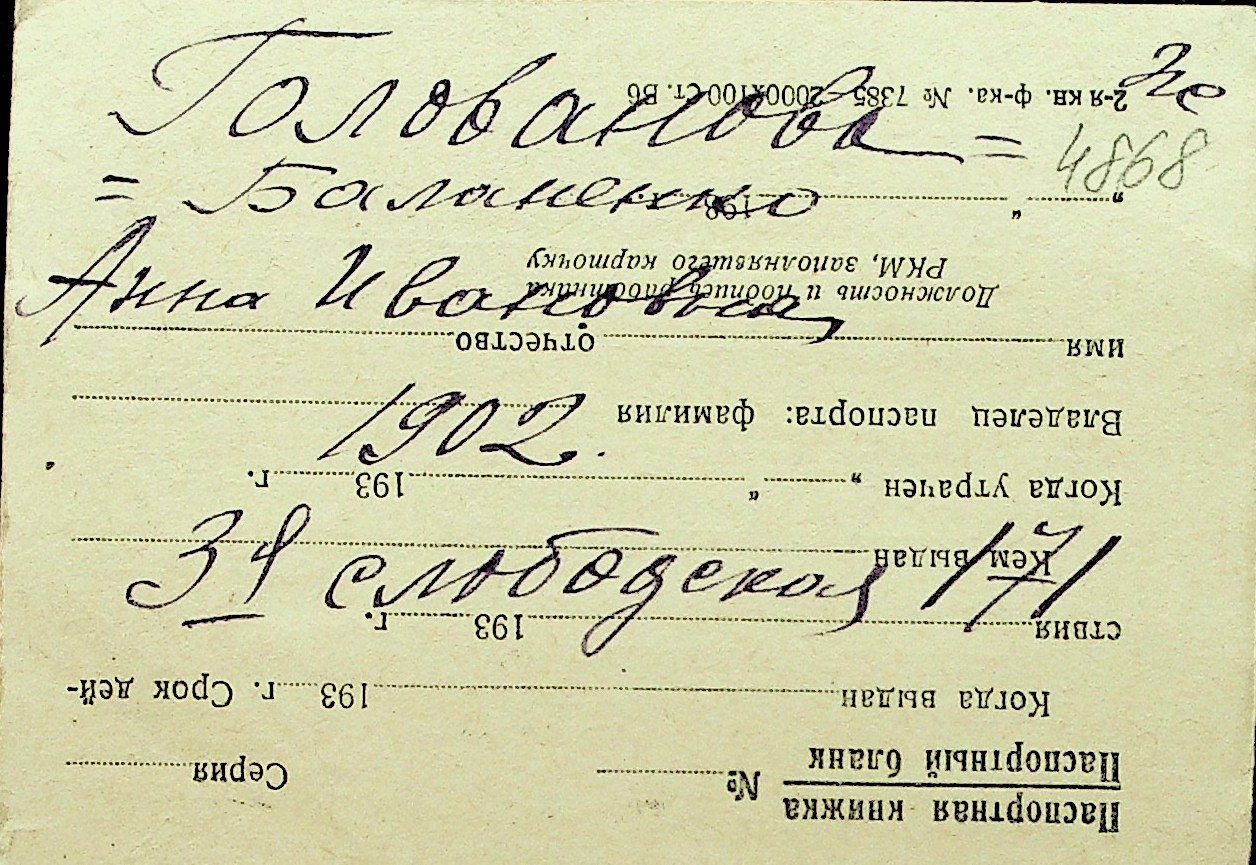 Голованова =
= Баланенко
Анна Ивановна,
1902.
3я слободская, 171
4868
Паспортная книжка
Паспортный бланк
№ Серия
Когда выдан 193 г. Срок дей-
ствия 193 г.
Кем выдан
Когда утрачен „ “ 193 г.
Владелец паспорта: фамилия
имя отчество
Должность и подпись работника
РКМ, заполнявшего карточку
„ “ 193
2-я кв. ф-ка. № 7385—2000х100 Ст. Б6